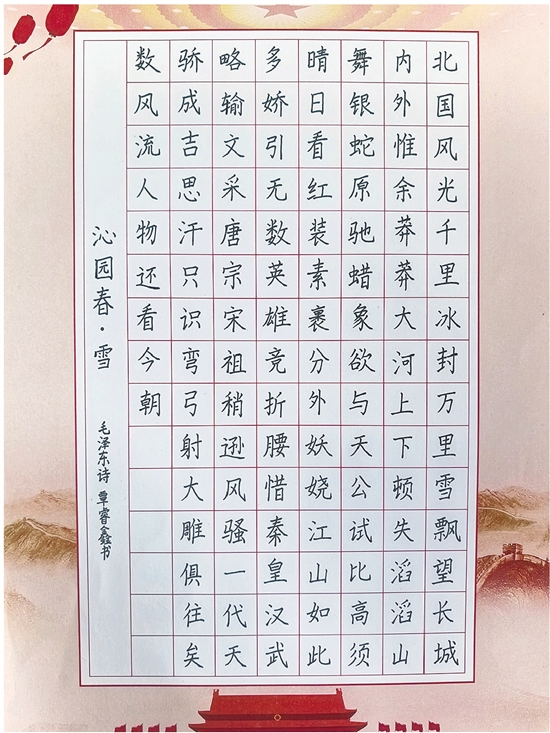 北国风光千里冰封万里雪飘望长城
内外惟余莽莽大河上下顿失滔滔山
舞银蛇原驰蜡象欲与天公试比高须
晴日看红装素裹分外妖娆江山如此
多娇引无数英雄竞折腰惜秦皇汉武
略输文采唐宗宋祖稍逊风骚一代天
骄成吉思汗只识弯弓射大雕俱往矣
数风流人物还看今朝
沁园春·雪
毛泽东诗 覃睿鑫书